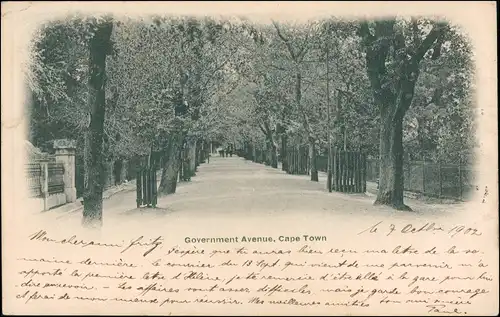 Government Avenue, Cape Town
le 7 Octobre 1902
Mon cher Fritz J'espère que tu auras bien reçu ma lettre de la se-
maine dernière. Le courrier du 13 Sept qui vient de me parvenir m'a
apporté ta première lettre d' je te remercie d'être allé à la gare pour
dire au revoir – Les affaires sont assez difficiles mais je garde bon courage
et ferai de mon mieux pour réussir. Mes meilleures amitiés
Paul.